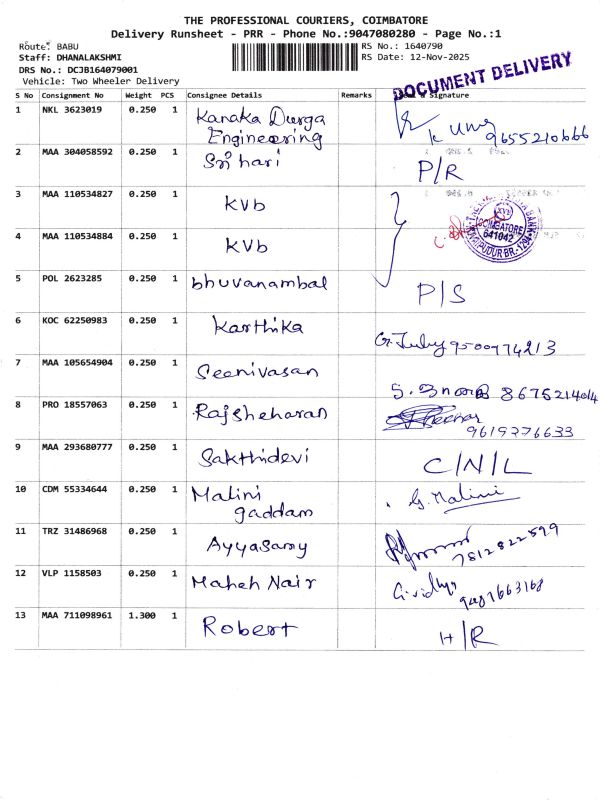 THE PROFESSIONAL COURIERS, COIMBATORE
Delivery Runsheet - PRR - Phone No.:9047080280 - Page No.:1
Route: BABU
Staff: DHANALAKSHMI
DRS No.: DCJB164079001
Vehicle: Two Wheeler Delivery
RS No.: 1640790
RS Date: 12-Nov-2025
DOCUMENT DELIVERY
S No Consignment No Weight PCS Consignee Details Remarks Signature
1 NKL 3623019 0.250 1 Kanaka Durga
Engineering
9655210666
2 MAA 304058592 0.250 1 Sri hari P/R
3 MAA 110534827 0.250 1 KVb
COIMBATORE
641042
4 MAA 110534884 0.250 1 KVb
5 POL 2623285 0.250 1 bhuvanambal P/S
6 KOC 62250983 0.250 1 Karthika
7 MAA 105654904 0.250 1 Seenivasan
8 PRO 18557063 0.250 1 Rajsheharan
9619276633
9 MAA 293680777 0.250 1 Sakthidevi C/N/L
10 CDM 55334644 0.250 1 Malini
gaddam G. Malini
11 TRZ 31486968 0.250 1 Ayyasamy
7812822599
12 VLP 1158503 0.250 1 Maheh Nair
13 MAA 711098961 1.300 1 Robert H/R